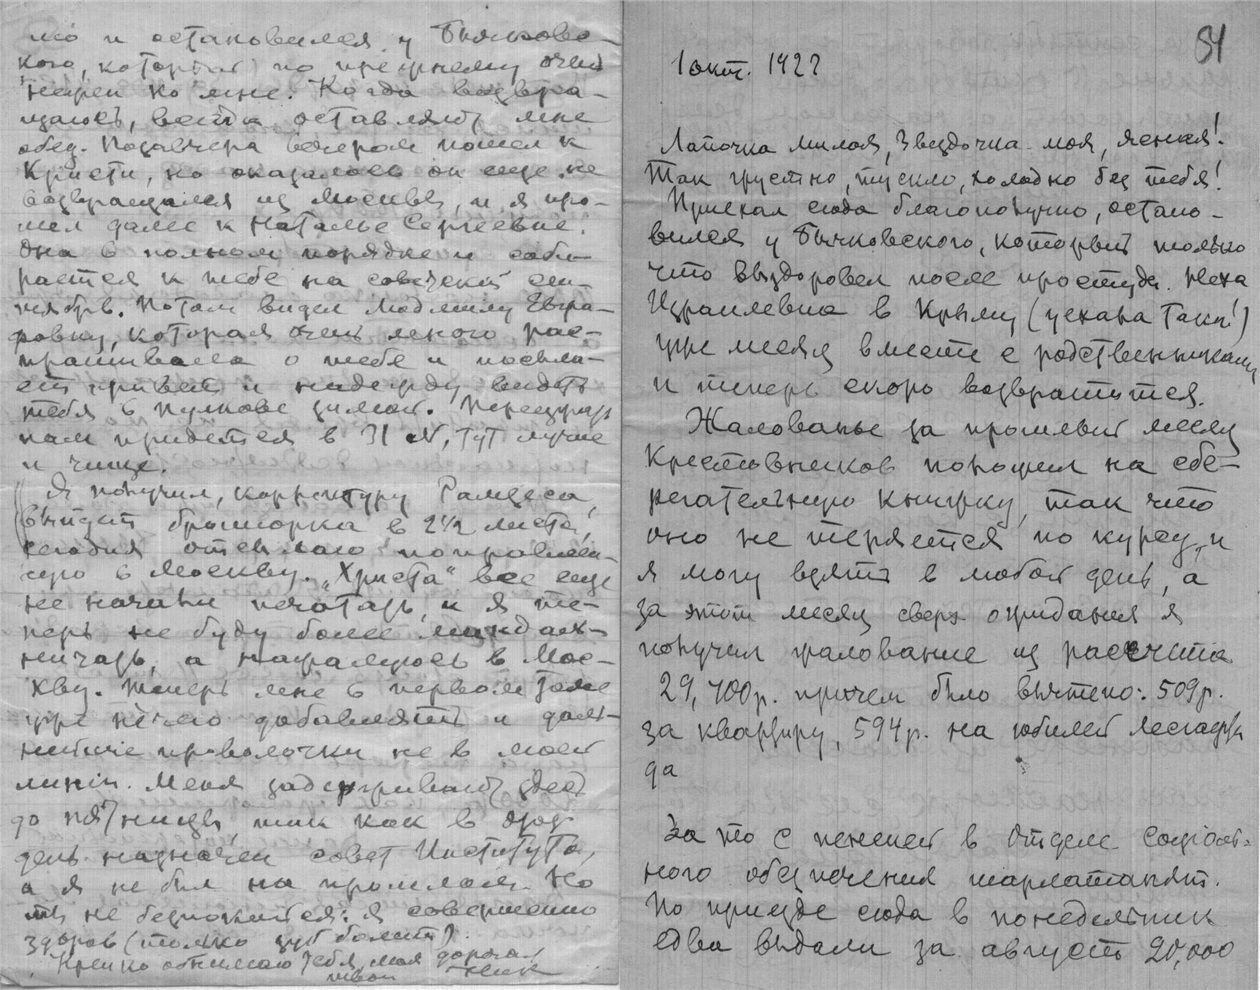 но и остановился у Бычковс-
кого, который по прежнему очень
нежен ко мне. Когда возвра-
щаюсь, всегда оставляют мне
обед. Позавчера вечером пошел к
Кристи, но оказалось он еще не
возвращался из Москвы, и я про-
шел далее к Наталье Сергеевне.
Она в полном порядке и соби-
рается к тебе на
Потом видел Людмилу
которая очень много рас-
прашивала о тебе и посыла-
ет привет и надежду видеть
тебя в Пулкове зимой.
нам придется в 31 №, тут лучше
и чище.
Я получил корректуру Рамзеса,
выйдет брошюрка в 2 1/2 листа,
сегодня отсылаю
в Москву. „Христа" все еще
не начали печатать, и я те-
перь не буду более
а направлюсь в Мос-
кву. Теперь мне в первом томе
уже нечего добавлять и даль-
нейшие проволочки не в моей
линии. Меня задерживают здесь
до пятницы, так как в этот
день назначен совет Института,
а я не был на прошлом. Но
ты не беспокойся: я совершенно
здоров (только зуб болит).
Крепко обнимаю тебя, моя дорогая!
твой
54
1 окт. 1922
Лапочка милая, Звездочка моя, ясная!
Так грустно, тускло, холодно без тебя!
Приехал сюда благополучно, остано-
вился у Бычковского, который только
что выздоровел после простуды. Неха
Израилевна в Крыму (уехала таки!)
уже месяц вместе с родственниками
и теперь скоро возвратится.
Жалованье за прошлый месяц
Крестовников положил на сбе-
регательную книжку, так что
оно не теряется по курсу, и
я могу взять в любой день, а
за этот месяц сверх ожидания я
получил жалование из расчета
29,400 р. причем было вычтено: 509 р.
за квартиру, 594 р. на юбилей Лесгафта
да
За то с пенсией в Отделе Социаль-
ного обеспечения шарлатанят.
По приезде сюда в понедельник
едва выдали за август 20,000